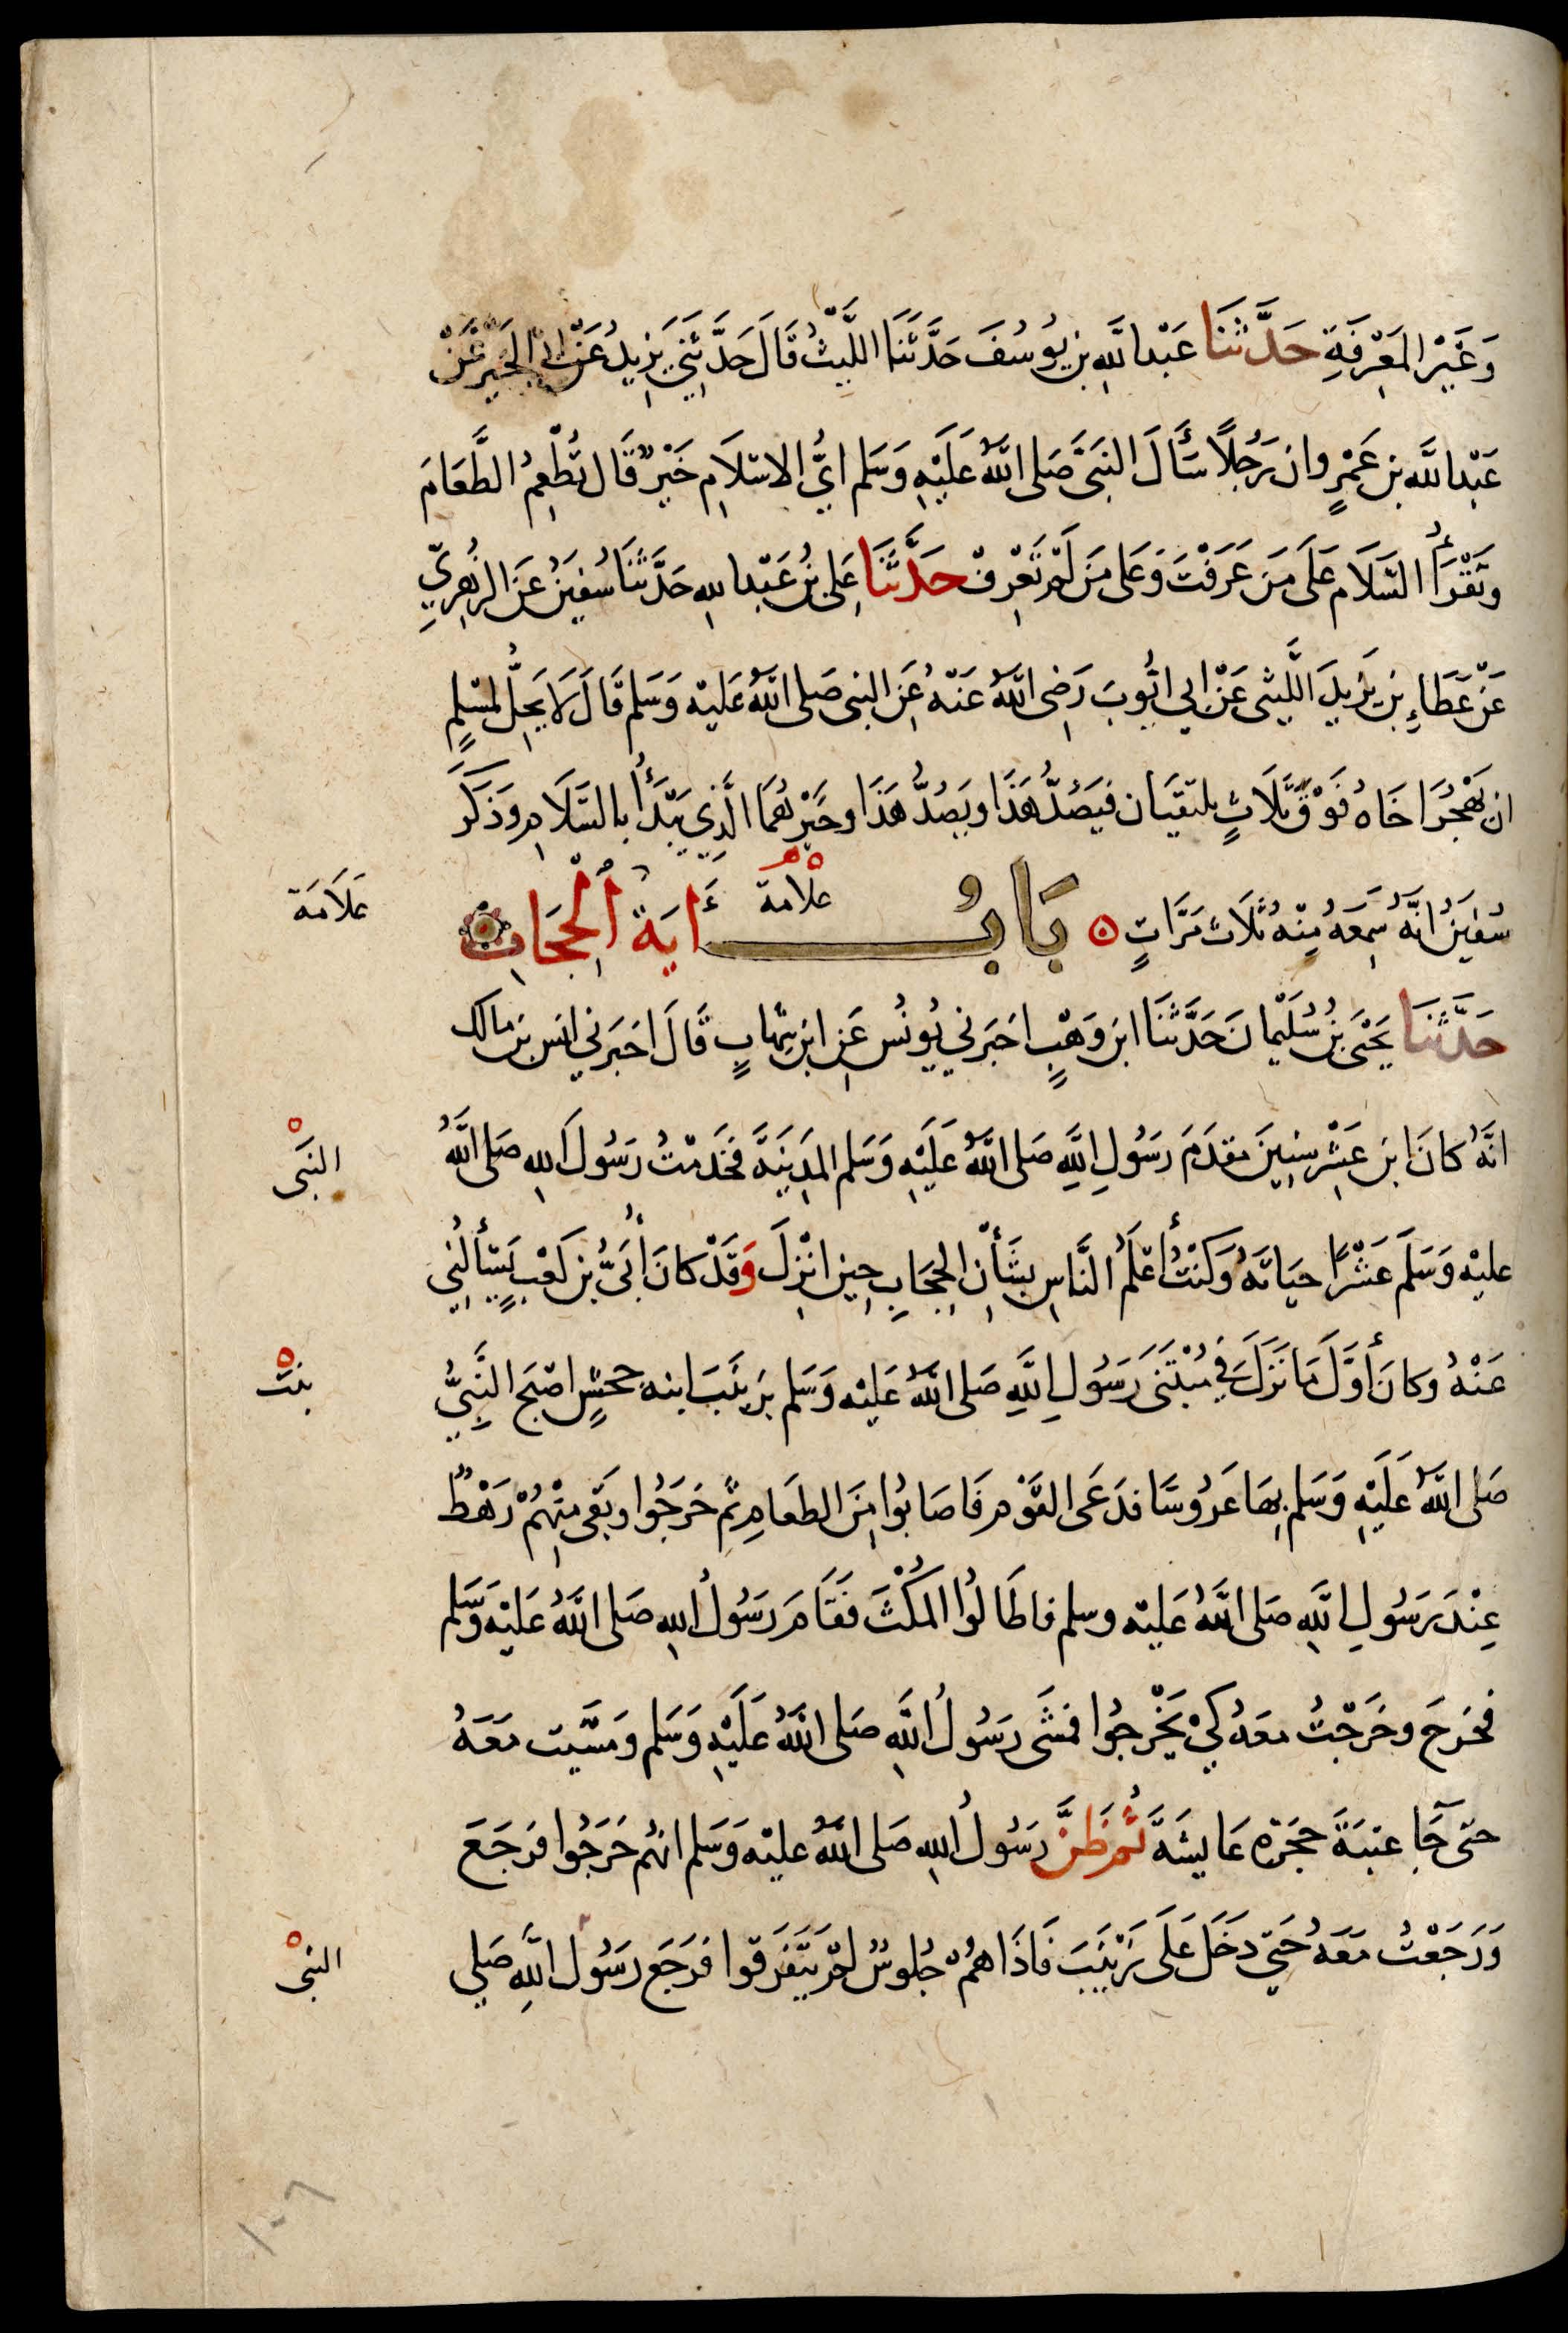 وَغَيْرِ المَعْرِفَةِ حَدَّثَنَا عَبْدالله بن يُوسُفَ حَدَّثَنَا اللَّيْثُ قَالَ حَدَّثَنِي يَزِيدُ عَنْ ابي الخَيْرِ عَنْ
عَبْدِالله بن عَمْرٍو ان رَجُلاً سَأَلَ النبَىَّ صَلى اللهُ عَلَيْهِ وَسَلم ايُّ الاسْلَامِ خَيْرٌ قَال تُطْعِمُ الطَّعَامَ
وَتَقْرَأُ السَّلَام عَلَى مَن عَرَفْتَ وَعَلى مَن لَمْ تَعْرِفْ حَدَّثَنَا عَلي بنُ عَبْدالله حَدَّثَنَا سُفيٰنُ عَن الزُهرِيِّ
عَنْ عَطَاءِ بن يَزِيدَ اللَّيثى عَنْ ابي ايُّوبَ رَضِى اللهُ عَنْهُ عَنِ النبى صَلى اللهُ عَليْه وَسَلم قَالَ لَا يَحِلُّ لمسْلِمٍ
ان يَهْجُرَ اخَاهُ فَوْقَ ثَلَاثٍ يلتقيَان فيَصُدُّ هَذَا ويَصُدُّ هَذَا وخَيْرهُمَا الَّذِي يَبْدَأُ بالسَّلَامِ وَذَكَرَ
سُفيٰنُ انَّهُ سَمِعَهُ مِنْه ثَلَاث مَرَّاتٍ ه بَابُ علامة أَايَةُ الْحِجَابِ
عَلَامَة
حَدَّثَنَا يَحْيَى بنُ سُلَيْمانَ حَدَّثَنَا ابن وَهْبٍ اخبَرَني يُونُس عَنِ ابن شِهَابٍ قَالَ اخبَرَني انس بن مالك
انَّهُ كانَ ابن عَشْرِ سنِينَ مَقدَمَ رَسُولِ اللَّهِ صَلى اللهُ عَلَيْهِ وَسَلم المَدِينَةَ فخَدَمْتُ رَسُولَ اللهِ صَلى اللهُ
النبَى
عليْهِ وَسَلَمَ عَشْرًا حيَاتَهُ وَكُنْتُ أعْلَمُ النَّاسِ بشَأْنِ الحِجَابِ حِين انْزِلَ وَقَدْ كانَ أُبَيُّ بن كَعْبٍ يَسْألُنِي
عَنْهُ وكانَ أَوَّلَ مَا نَزَلَ فِي مُبْتَنَى رَسُولِ اللَّهِ صَلى اللهُ عَليْه وَسَلم بزَينَبَ ابنه جحشٍ اصْبَح النَّبِيُّ
بنت
صَلى اللهُ عَلَيْهِ وَسَلم بهَا عَرُوسًا فدَعَى القَوْم فَاصَابُوا مِنَ الطعَامِ ثُم خَرَجُوا وبَقى مِنْهُمْ رَهْطٌ
عِنْدَ رَسُولِ اللَّهِ صَلى اللهُ عَليْه وسلم فاطَالوُا المَكْثَ فَقَامَ رَسُولُ اللهِ صَلى اللهُ عَليْهِ وَسَلم
فخرَجَ وخَرَجْتُ معَهُ كَيْ يَخْرجُوا فمشَى رَسُولُ اللَّهِ صَلى اللهُ عَلَيْهِ وَسَلم ومَشَيت مَعَهُ
حتى جَآ عتبَةَ حجْرَه عَايشَةَ ثُم ظَنَّ رَسُولُ اللهِ صَلى اللهُ عليْهِ وَسَلم انهُم خَرَجُوا فرَجَعَ
وَرَجَعْتُ مَعَهُ حَتي دَخَلَ عَلَى زَيْنَبَ فَاذَا هُمْ جُلوسٌ لَمْ يَتَفَرَقوا فرَجَع رَسُولُ اللَّهِ صَلي
النبى
١٠٦